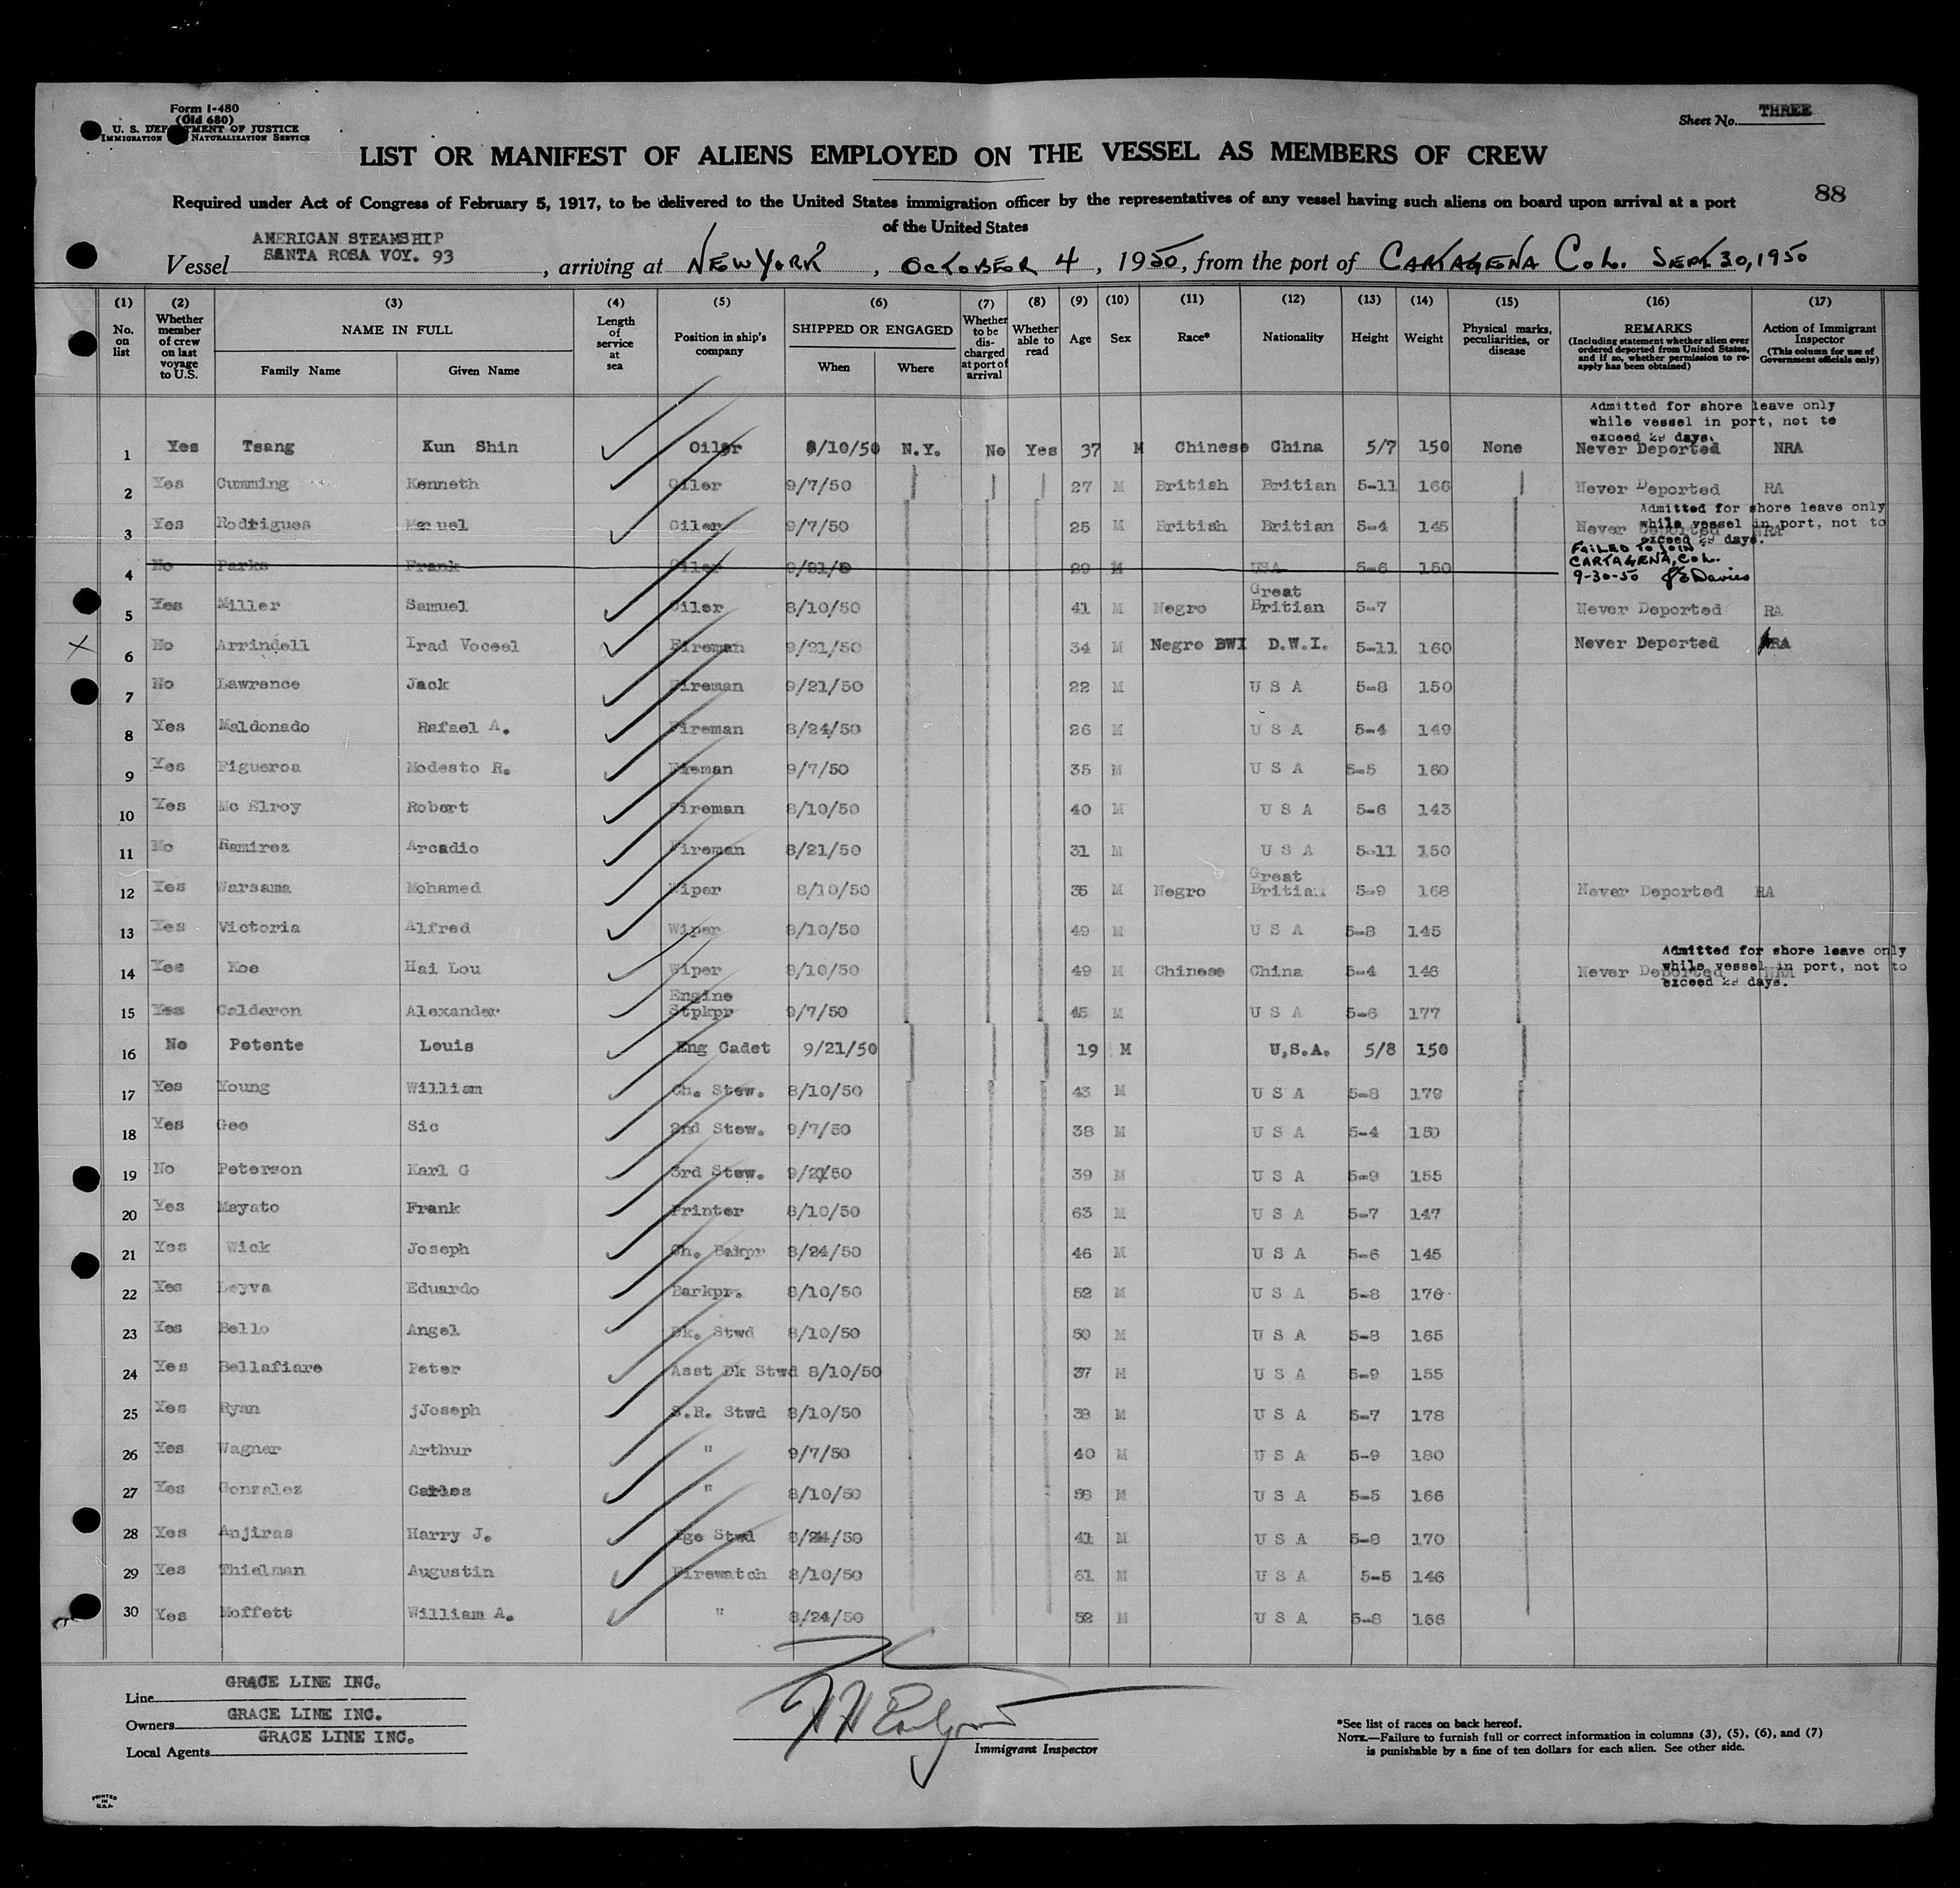 Form I-480
(Old 680)
U. S. DEPARTMENT OF JUSTICE
IMMIGRATION NATURALIZATION SERVICE
Sheet No. THREE
LIST OR MANIFEST OF ALIENS EMPLOYED ON THE VESSEL AS MEMBERS OF CREW
88
Required under Act of Congress of February 5, 1917, to be delivered to the United States immigration officer by the representatives of any vessel having such aliens on board upon arrival at a port
of the United States
AMERICAN STEAMSHIP
Vessel SANTA ROSA VOY. 93, arriving at NEW YORK, OCTOBER 4, 1950, from the port of CARTAGENA COL. SEPT 30, 1950
(1) No. on list (2) Whether member of crew on last voyage to U.S. (3) NAME IN FULL Family Name Given Name (4) Length of service at sea (5) Position in ship's company (6) SHIPPED OR ENGAGED When Where (7) Whether to be discharged at port of arrival (8) Whether able to read (9) Age (10) Sex (11) Race* (12) Nationality (13) Height (14) Weight (15) Physical marks, peculiarities, or disease (16) REMARKS (Including statement whether alien ever ordered deported from United States, and if so, whether permission to reapply has been obtained) (17) Action of Immigrant Inspector (This column for use of Government officials only)
Admitted for shore leave only
while vessel in port, not to
exceed 29 days.
1 Yes Tsang Kun Shin Oiler 8/10/50 N.Y. No Yes 37 M Chinese China 5/7 150 None Never Deported NRA
2 Yes Cumming Kenneth Oiler 9/7/50 27 M British Britian 5-11 166 Never Deported RA
Admitted for shore leave only
while vessel in port, not to
exceed 29 days.
3 Yes Rodrigues Manuel Oiler 9/7/50 25 M British Britian 5-4 145 Never Deported NRA
FAILED TO JOIN
CARTAGENA, COL.
9-30-50 Davies
4 No Parks Frank Oiler 9/21/50 29 M USA 5-6 150
5 Yes Miller Samuel Oiler 8/10/50 41 M Negro Great Britian 5-7 Never Deported RA
X 6 No Arrindell Irad Voceel Fireman 9/21/50 34 M Negro BWI D.W.I. 5-11 160 Never Deported RA
7 No Lawrence Jack Fireman 9/21/50 22 M U S A 5-8 150
8 Yes Maldonado Rafael A. Fireman 8/24/50 26 M U S A 5-4 149
9 Yes Figueroa Modesto R. Fireman 9/7/50 35 M U S A 5-5 160
10 Yes Mc Elroy Robert Fireman 8/10/50 40 M U S A 5-6 143
11 No Ramirez Arcadio Fireman 8/21/50 31 M U S A 5-11 150
12 Yes Warsama Mohamed Wiper 8/10/50 35 M Negro Great Britian 5-9 168 Never Deported RA
13 Yes Victoria Alfred Wiper 8/10/50 49 M U S A 5-8 145
Admitted for shore leave only
while vessel in port, not to
exceed 29 days.
14 Yes Koe Hai Lou Wiper 8/10/50 49 M Chinese China 5-4 146 Never Deported NRA
15 Yes Calderon Alexander Engine Stpkpr 9/7/50 45 M U S A 5-6 177
16 No Potente Louis Eng Cadet 9/21/50 19 M U.S.A. 5/8 150
17 Yes Young William Ch. Stew. 8/10/50 43 M U S A 5-8 179
18 Yes Gee Sic 2nd Stew. 9/7/50 38 M U S A 5-4 150
19 No Peterson Karl G 3rd Stew. 9/21/50 39 M U S A 5-9 155
20 Yes Mayato Frank Printer 8/10/50 63 M U S A 5-7 147
21 Yes Wick Joseph Ch. Bakpr 8/24/50 46 M U S A 5-6 145
22 Yes Leyva Eduardo Barkpr. 8/10/50 52 M U S A 5-8 176
23 Yes Bello Angel Dk. Stwd 8/10/50 50 M U S A 5-8 165
24 Yes Bellafiare Peter Asst Dk Stwd 8/10/50 37 M U S A 5-9 155
25 Yes Ryan jJoseph S.R. Stwd 8/10/50 38 M U S A 5-7 178
26 Yes Wagner Arthur " 9/7/50 40 M U S A 5-9 180
27 Yes Gonzalez Carlos " 8/10/50 58 M U S A 5-5 166
28 Yes Anjiras Harry J. Bge Stwd 8/24/50 41 M U S A 5-8 170
29 Yes Thielman Augustin Firewatch 8/10/50 61 M U S A 5-5 146
30 Yes Moffett William A. " 8/24/50 52 M U S A 5-8 166
Line GRACE LINE INC.
Owners GRACE LINE INC.
Local Agents GRACE LINE INC.
Immigrant Inspector
*See list of races on back hereof.
NOTE.—Failure to furnish full or correct information in columns (3), (5), (6), and (7)
is punishable by a fine of ten dollars for each alien. See other side.
PRINTED
IN
U.S.A.